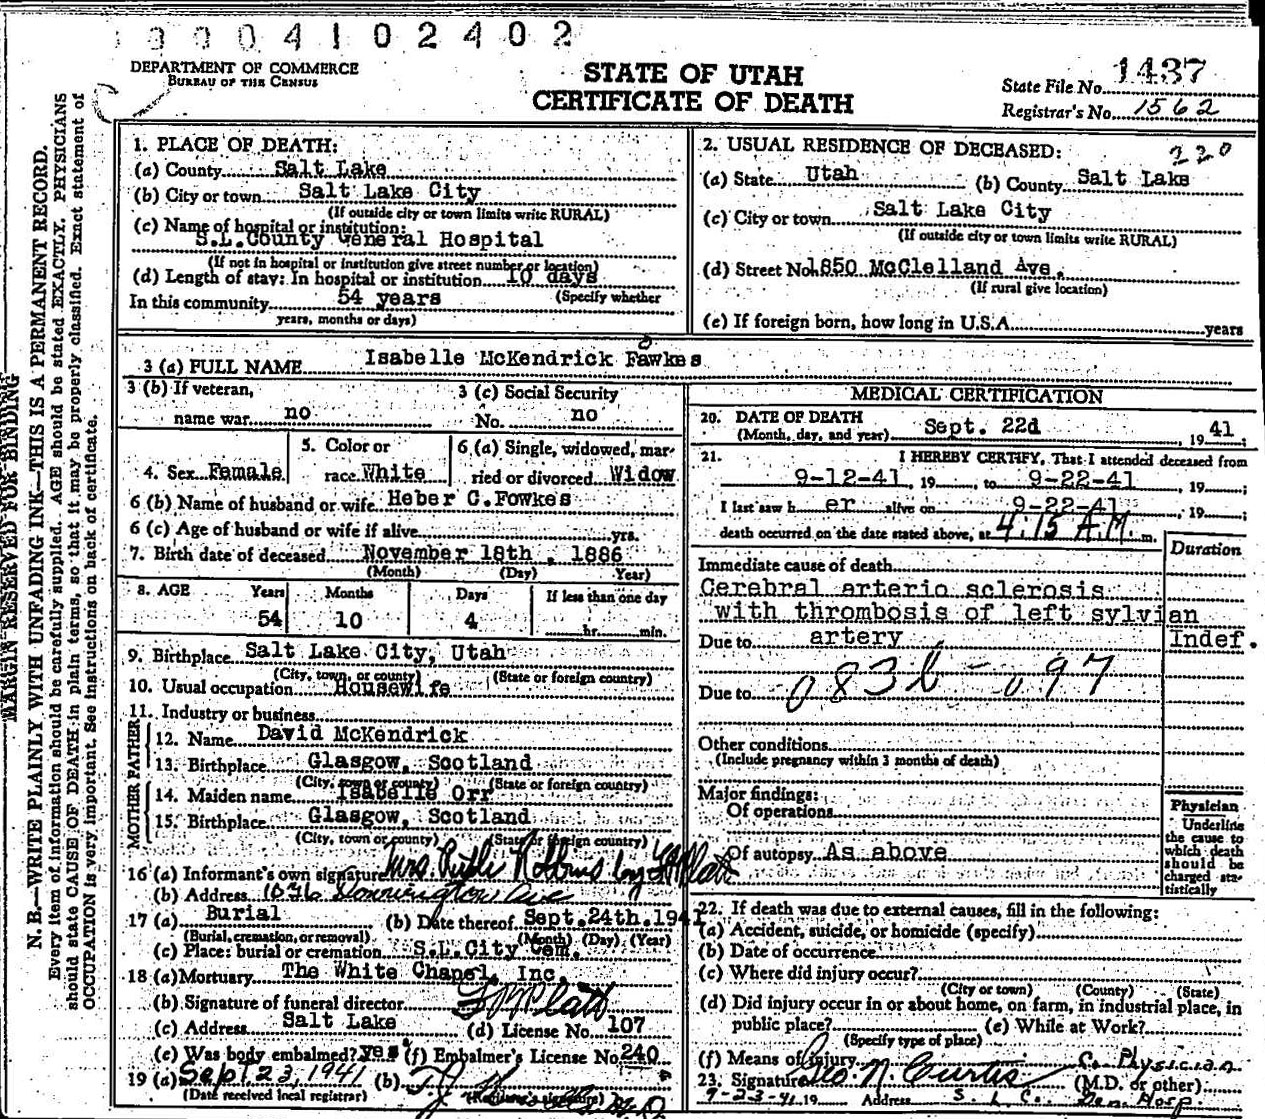 9 9 0 4 1 0 2 4 0 2
DEPARTMENT OF COMMERCE
BUREAU OF THE CENSUS
STATE OF UTAH
CERTIFICATE OF DEATH
State File No. 1437
Registrar's No. 1562
MARGIN RESERVED FOR BINDING
N. B.—WRITE PLAINLY WITH UNFADING INK—THIS IS A PERMANENT RECORD.
Every item of information should be carefully supplied. AGE should be stated EXACTLY. PHYSICIANS
should state CAUSE OF DEATH in plain terms, so that it may be properly classified. Exact statement of
OCCUPATION is very important. See instructions on back of certificate.
1. PLACE OF DEATH:
(a) County Salt Lake
(b) City or town Salt Lake City
(If outside city or town limits write RURAL)
(c) Name of hospital or institution:
S.L.County General Hospital
(If not in hospital or institution give street number or location)
(d) Length of stay: In hospital or institution 10 days
In this community 54 years (Specify whether
years, months or days)
2. USUAL RESIDENCE OF DECEASED: 220
(a) State Utah (b) County Salt Lake
(c) City or town Salt Lake City
(If outside city or town limits write RURAL)
(d) Street No. 1850 McClelland Ave.
(If rural give location)
(e) If foreign born, how long in U.S.A. years
3 (a) FULL NAME Isabelle McKendrick Fawkes
o
3 (b) If veteran,
name war no
3 (c) Social Security
No. no
4. Sex Female
5. Color or
race White
6 (a) Single, widowed, mar-
ried or divorced Widow
6 (b) Name of husband or wife Heber C.Fowkes
6 (c) Age of husband or wife if alive yrs.
7. Birth date of deceased November 18th , 1886
(Month) (Day) Year)
8. AGE Years Months Days If less than one day
54 10 4 hr. min.
9. Birthplace Salt Lake City, Utah
(City, town, or county) (State or foreign country)
10. Usual occupation Housewife
11. Industry or business
FATHER
12. Name David McKendrick
13. Birthplace Glasgow, Scotland
(City, town or county) (State or foreign country)
MOTHER
14. Maiden name Isabelle Orr
15. Birthplace Glasgow, Scotland
(City, town or county) (State or foreign country)
16 (a) Informant's own signature Mrs. Ruth Robbins by
(b) Address 1636 Ave
17 (a) Burial (b) Date thereof Sept.24th.1941
(Burial, cremation, or removal) (Month) (Day) (Year)
(c) Place: burial or cremation S.L.City Cem.
18 (a) Mortuary The White Chapel, Inc.
(b) Signature of funeral director
(c) Address Salt Lake (d) License No. 107
(e) Was body embalmed? yes (f) Embalmer's License No. 240
19 (a) Sept 23, 1941 (b)
(Date received local registrar) (Registrar's signature)
MEDICAL CERTIFICATION
20. DATE OF DEATH
(Month, day, and year) Sept. 22d , 19 41;
21. I HEREBY CERTIFY, That I attended deceased from
9-12-41, 19 , to 9-22-41 , 19 ;
I last saw h er alive on 9-22-41 , 19 ;
death occurred on the date stated above, at 4:15 A.M. m.
Immediate cause of death Duration
Cerebral arterio sclerosis
with thrombosis of left sylvian
Due to artery Indef.
Due to 083b - 097
Other conditions
(Include pregnancy within 3 months of death)
Major findings:
Of operations
Of autopsy As above
Physician
Underline
the cause to
which death
should be
charged sta-
tistically
22. If death was due to external causes, fill in the following:
(a) Accident, suicide, or homicide (specify)
(b) Date of occurrence
(c) Where did injury occur?
(City or town) (County) (State)
(d) Did injury occur in or about home, on farm, in industrial place, in
public place? (e) While at Work?
(Specify type of place)
(f) Means of injury Co. Physician
23. Signature Geo. N. Curtis (M.D. or other)
9-23-41, 19 Address S. L. C. Gen. Hosp.